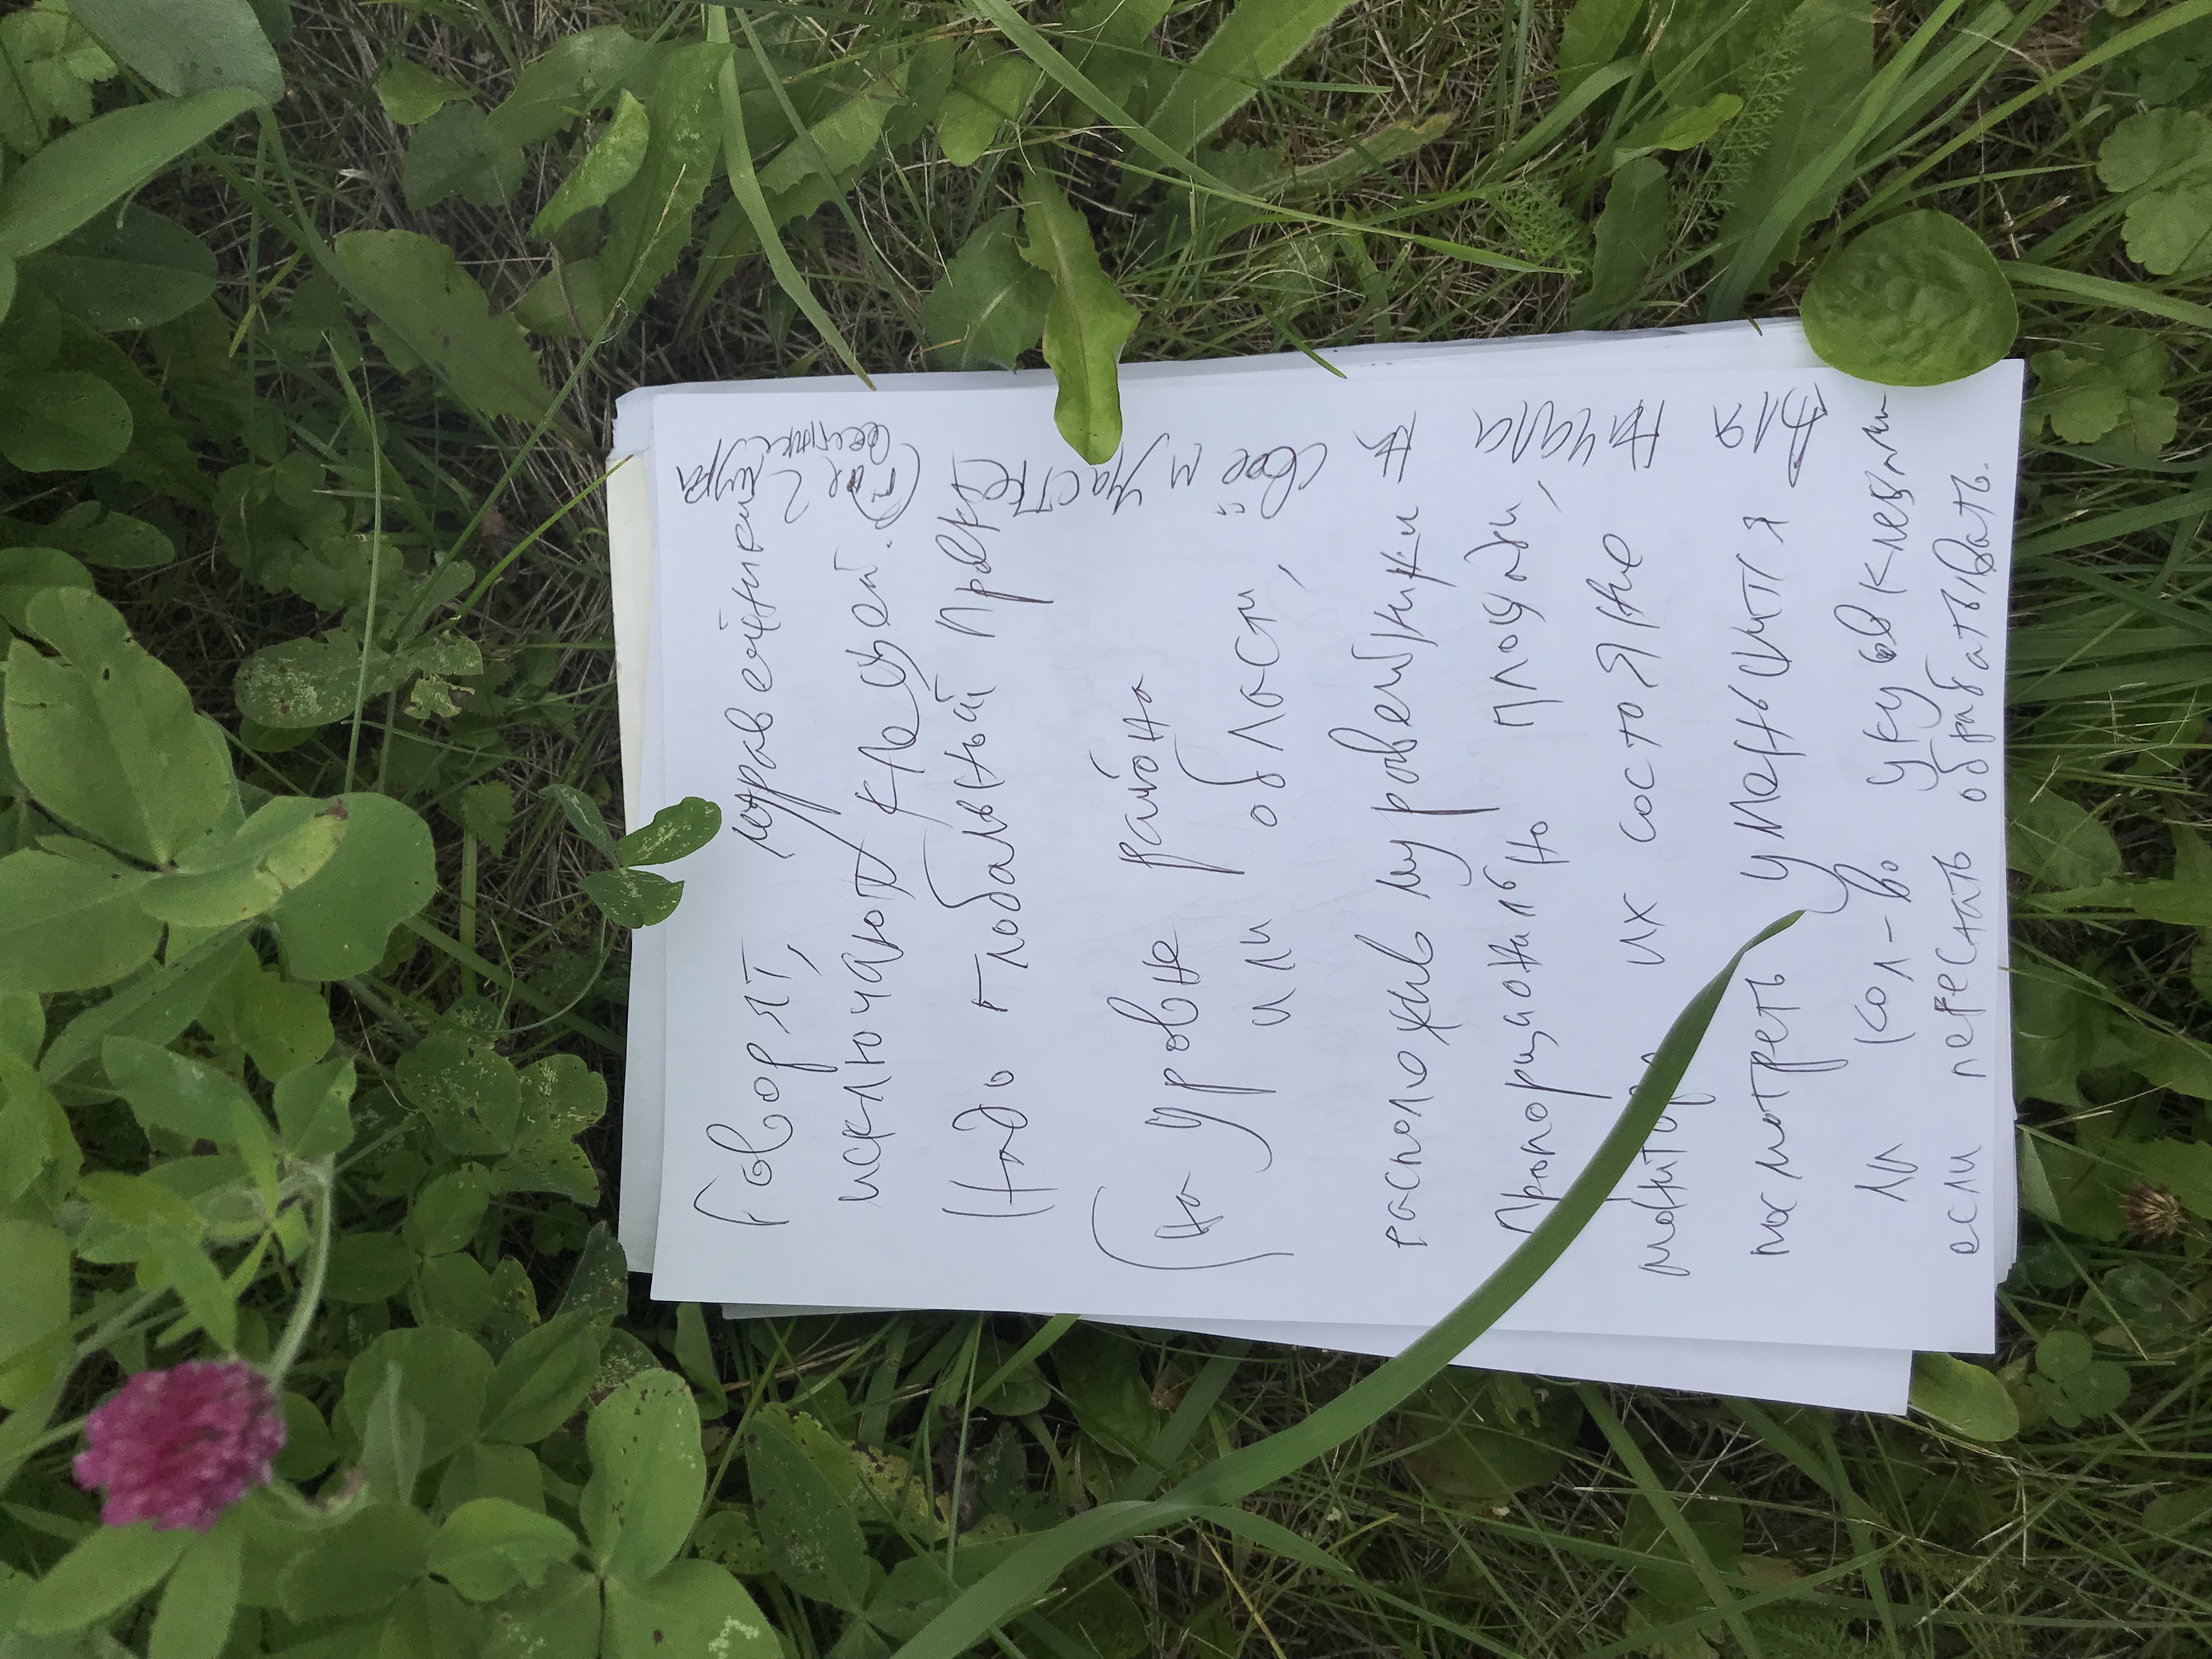 Говорят, муравейники
исключают клещей.
Надо глобальный проект
(на уровне района
или области,
расположив муравейники
пропорционально площади,
мониторя их состояние
посмотреть уменьшится
ли кол-во укусов клещами
если перестать обрабатывать.
Для начала на своём участке